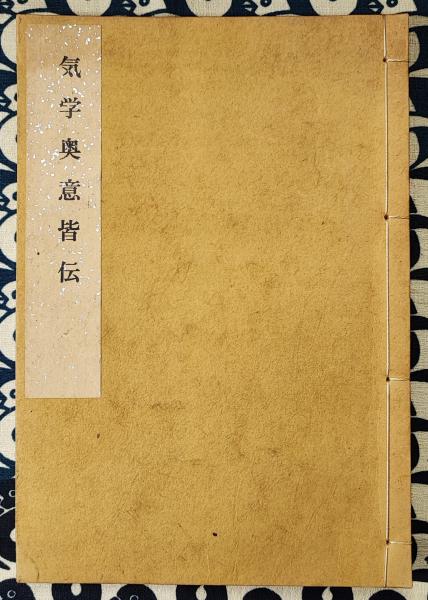 気学奥意皆伝